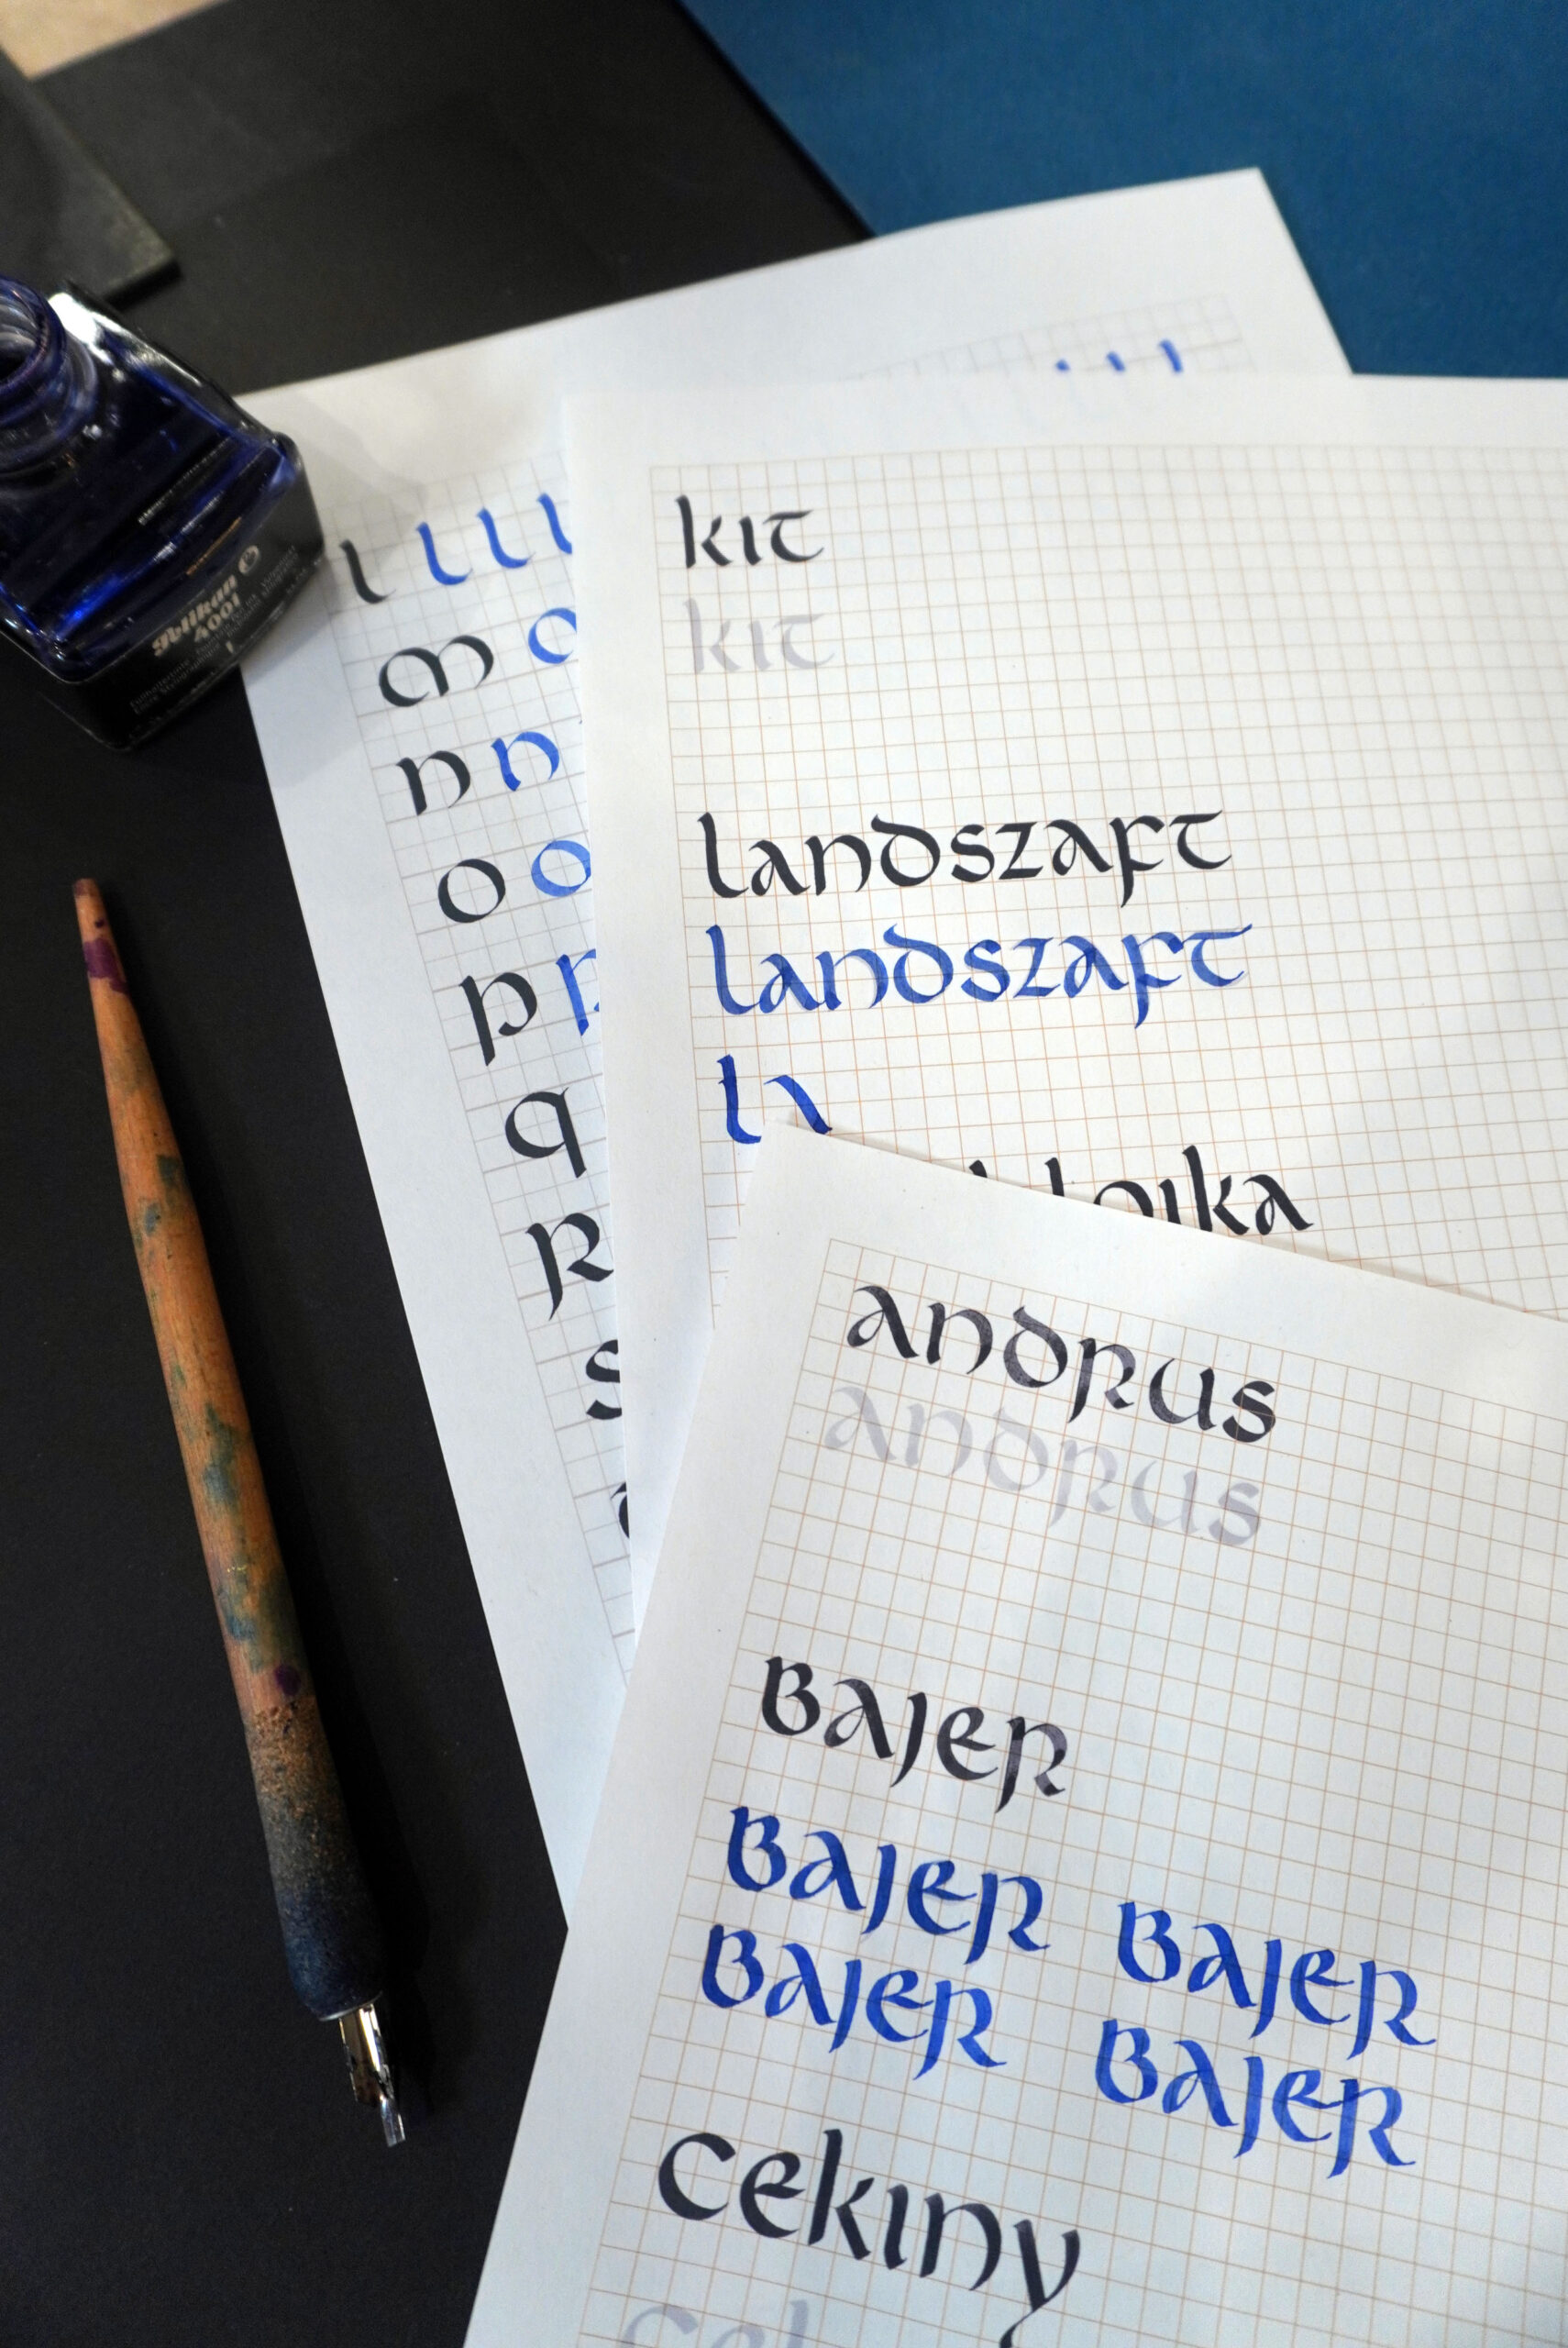 Pelikan
4001
l l l l
m
n n
o o
p p
q
r
s
kit
kit
landszaft
landszaft
la
andrus
andrus
bajer
bajer bajer
bajer bajer
cekiny